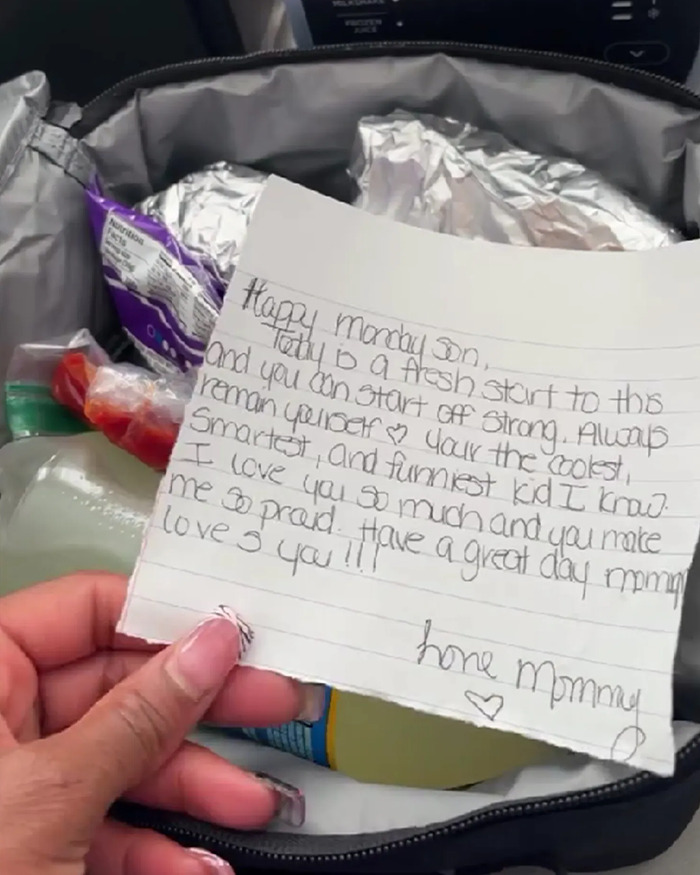 MILKSHAKE
FROZEN
JUICE
Nutrition
Facts
Happy monday son,
Today is a fresh start to this
and you can start off strong. Always
remain yourself ♡ your the coolest,
smartest, and funniest kid I know.
I love you so much and you make
me so proud. Have a great day mommy
love s you !!!
Love Mommy
♡